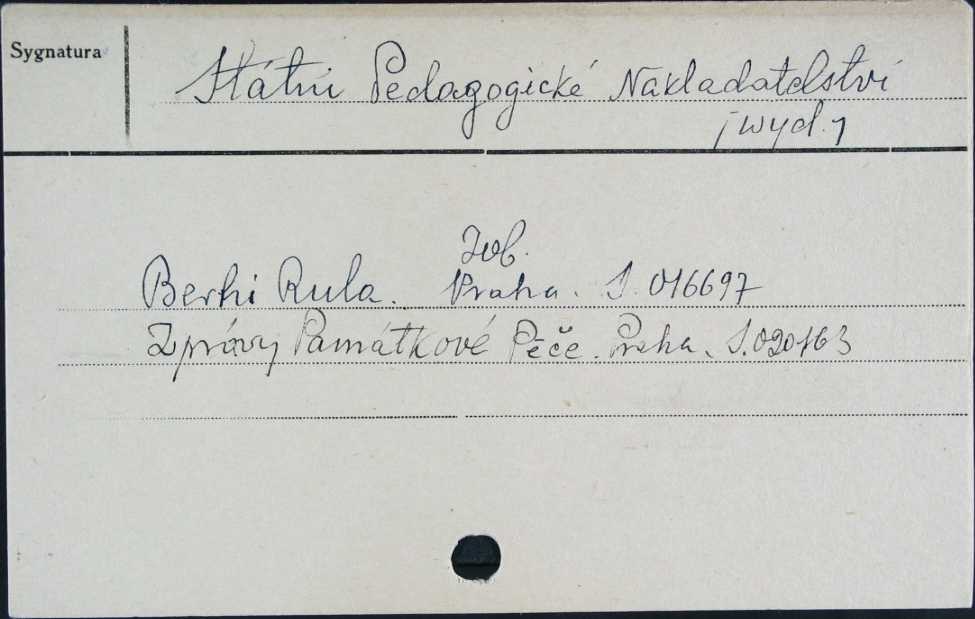 Sygnatura
Státní Pedagogické Nakladatelství
[wyd.]
Praha. S. 016697
Zprávy Památkové Péče. Praha. S.020163